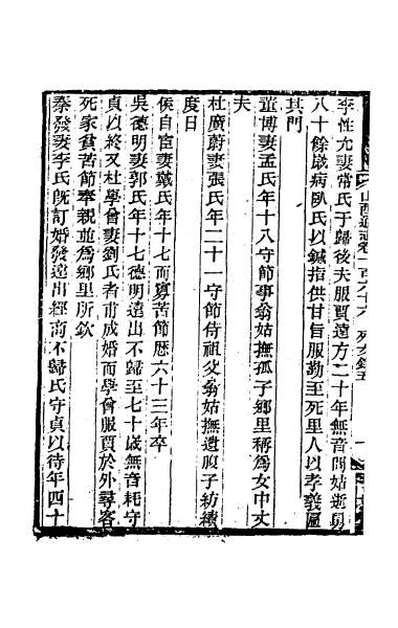 李性尤妻常氏于歸後夫服賈遠方二十年無音問姑逝舅
八十餘歲病臥氏以鍼指供甘旨服勤至死里人以孝義匾
其門
董博妻孟氏年十八守節事翁姑撫孤子鄉里稱為女中丈
夫
杜廣蔚妻張氏年二十一守節侍祖父翁姑撫遺腹子紡績
度日
侯自宦妻戴氏年十七而寡苦節歷六十三年卒
吳德明妻郭氏年十七德明遠出不歸至七十歲無音耗守
貞以終又杜學曾妻劉氏者甫成婚而學曾服賈於外尋客
死家貧苦節奉親並為鄉里所欽
秦發妻李氏既訂婚發遠出經商不歸氏守貞以待年四十